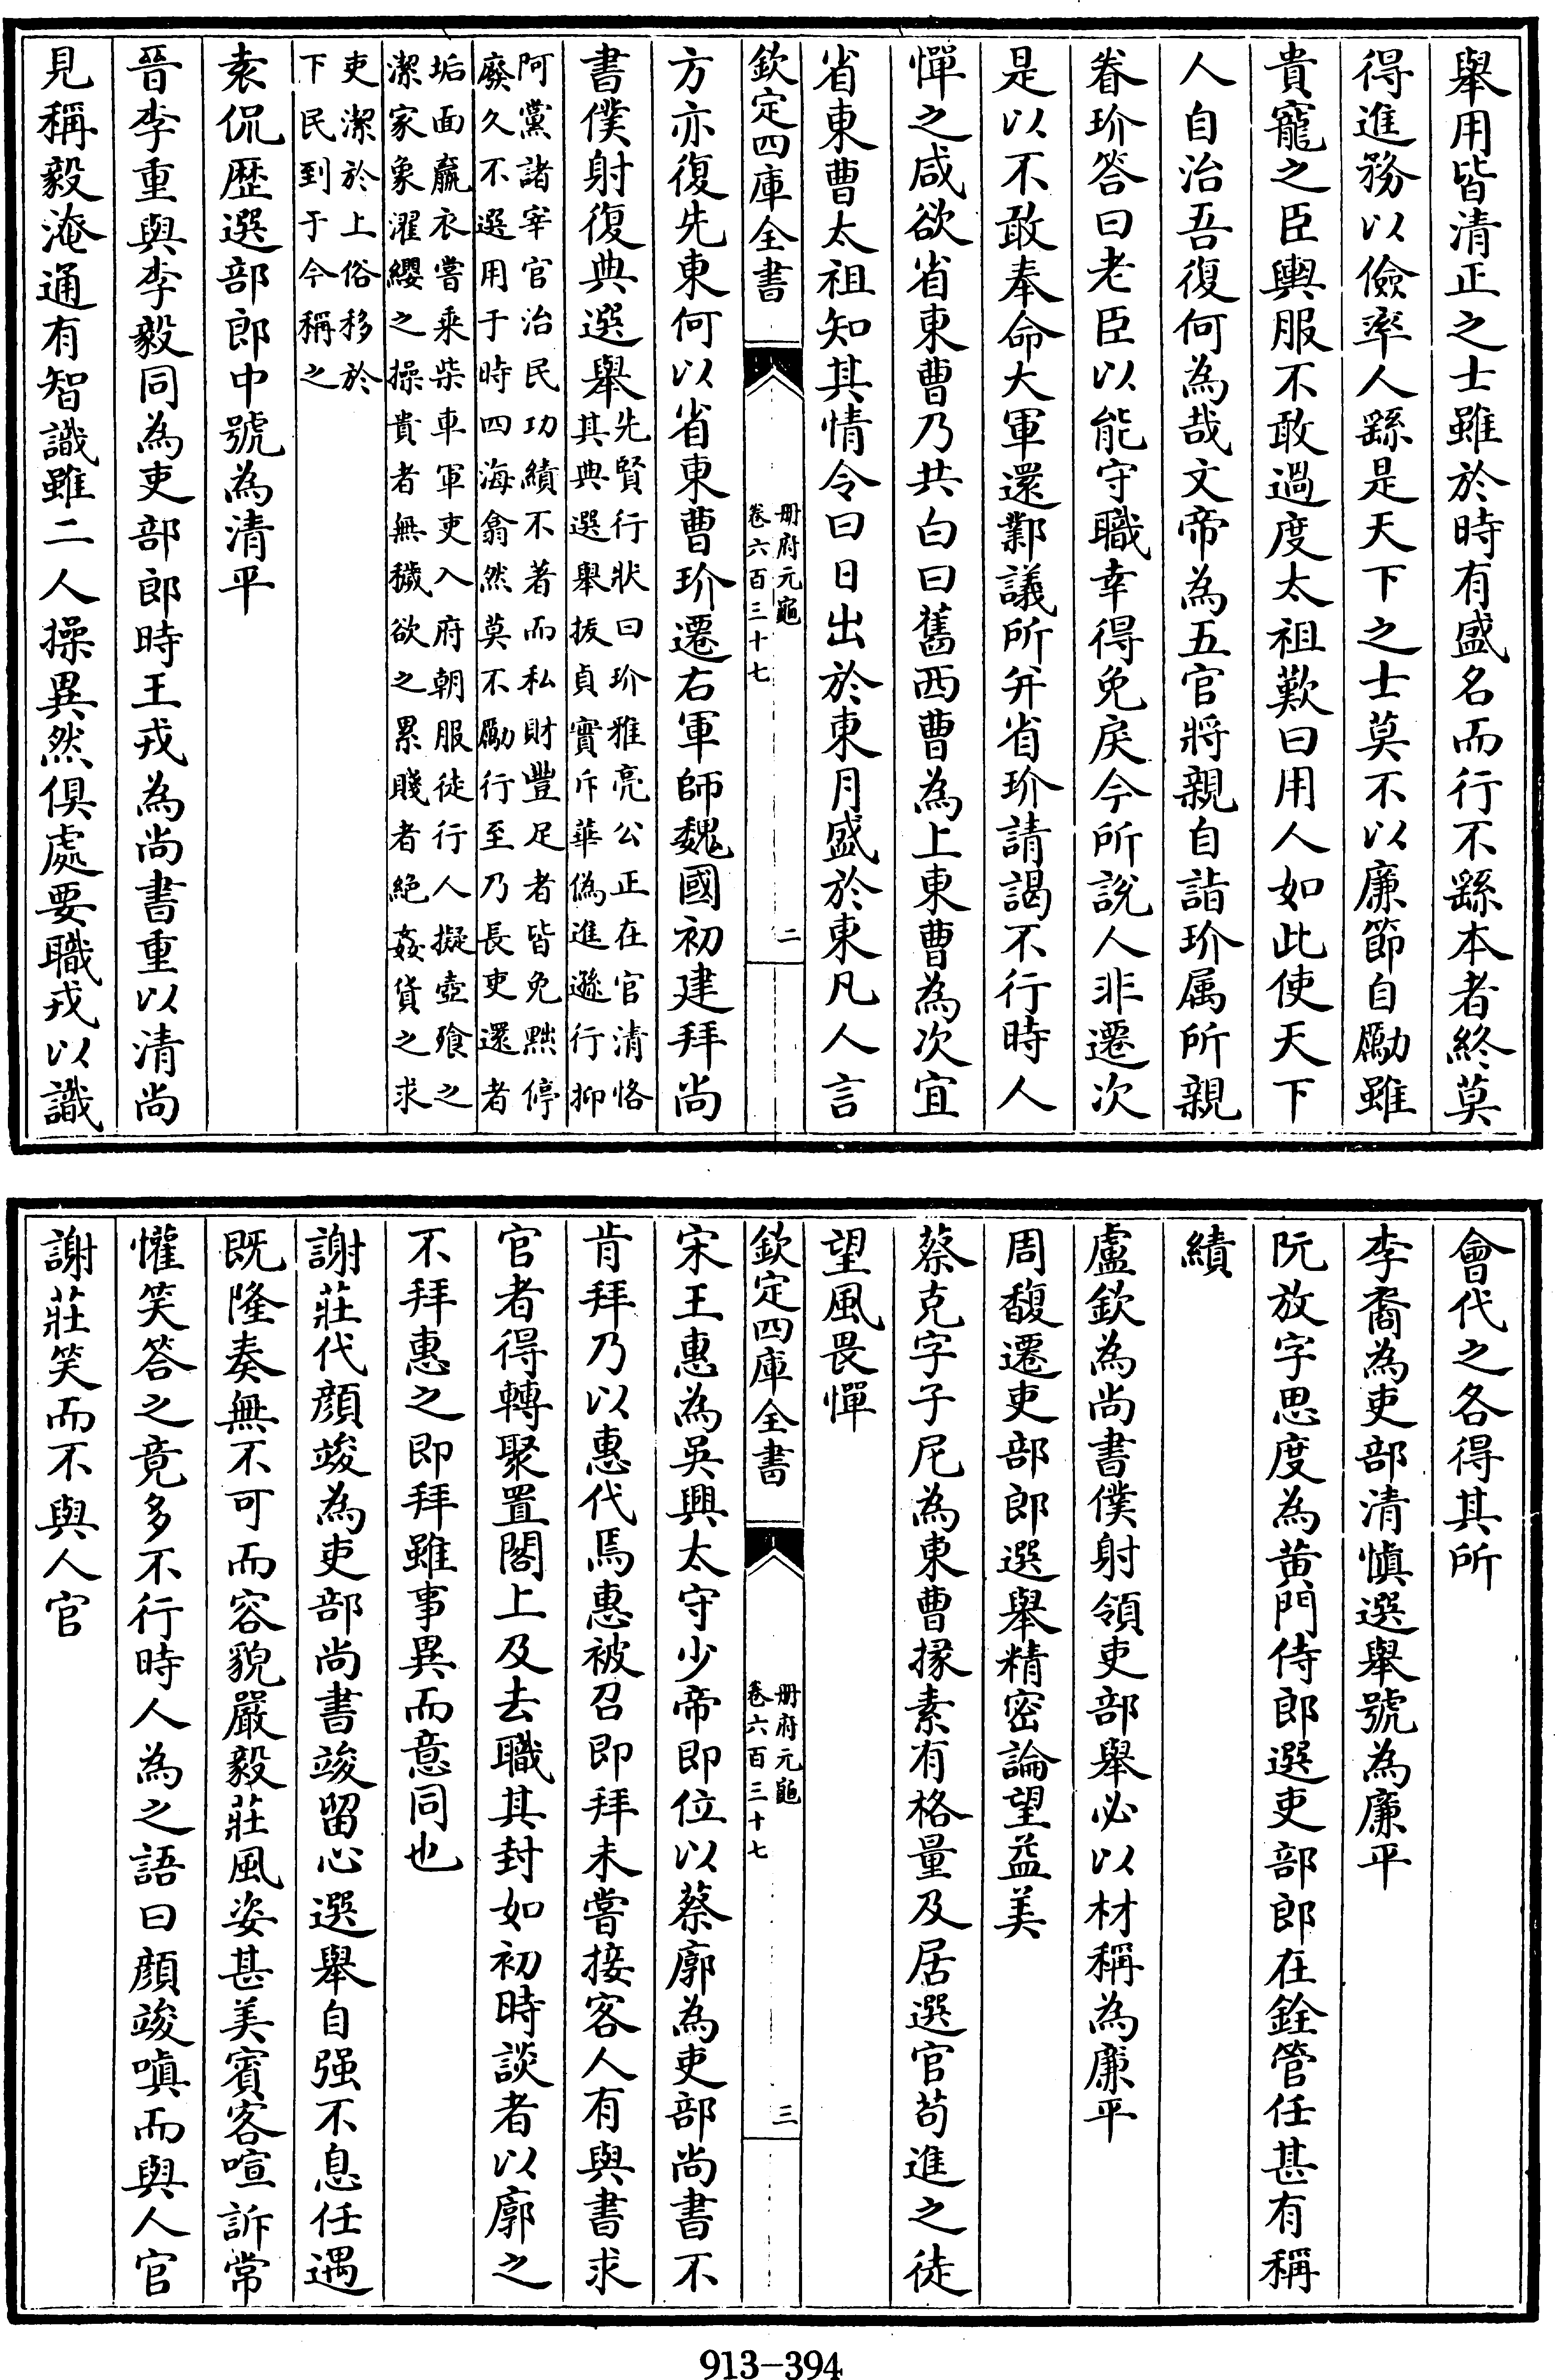 舉用皆清正之士雖於時有盛名而行不繇本者終莫
得進務以儉率人繇是天下之士莫不以廉節自勵雖
貴寵之臣輿服不敢過度太祖歎曰用人如此使天下
人自治吾復何為哉文帝為五官將親自詣玠属所親
眷玠答曰老臣以能守職幸得免戾今所說人非遷次
是以不敢奉命大軍還鄴議所并省玠請謁不行時人
憚之咸欲省東曹乃共白曰舊西曹為上東曹為次宜
省東曹太祖知其情令曰日出於東月盛於東凡人言
欽定四庫全書
册府元龜
卷六百三十七
二
方亦復先東何以省東曹玠遷右軍師魏國初建拜尚
書僕射復典選舉
先賢行狀曰玠雅亮公正在官清恪
其典選舉拔貞實斥華偽進遜行抑
阿黨諸宰官治民功績不著而私財豐足者皆免黜停
廢久不選用于時四海翕然莫不勵行至乃長吏還者
垢面羸衣嘗乗柴車軍吏入府朝服徒行人擬壺飱之
潔家象濯纓之操貴者無穢欲之累賤者絶姦貨之求
吏潔於上俗移於
下民到于今稱之
袁侃歴選部郎中號為清平
晉李重與李毅同為吏部郎時王戎為尚書重以清尚
見稱毅淹通有智識雖二人操異然俱處要職戎以識
會代之各得其所
李裔為吏部清慎選舉號為廉平
阮放字思度為黄門侍郎選吏部郎在銓管任甚有稱
績
盧欽為尚書僕射領吏部舉必以材稱為廉平
周馥遷吏部郎選舉精密論望益美
蔡克字子尼為東曹掾素有格量及居選官苟進之徒
望風畏憚
欽定四庫全書
册府元龜
卷六百三十七
三
宋王惠為吳興太守少帝即位以蔡廓為吏部尚書不
肯拜乃以惠代焉惠被召即拜未嘗接客人有與書求
官者得轉聚置閣上及去職其封如初時談者以廓之
不拜惠之即拜雖事異而意同也
謝莊代顔竣為吏部尚書竣留心選舉自强不息任遇
既隆奏無不可而容貌嚴毅莊風姿甚美賓客喧訴常
懽笑答之竟多不行時人為之語曰顔竣嗔而與人官
謝莊笑而不與人官
913-394